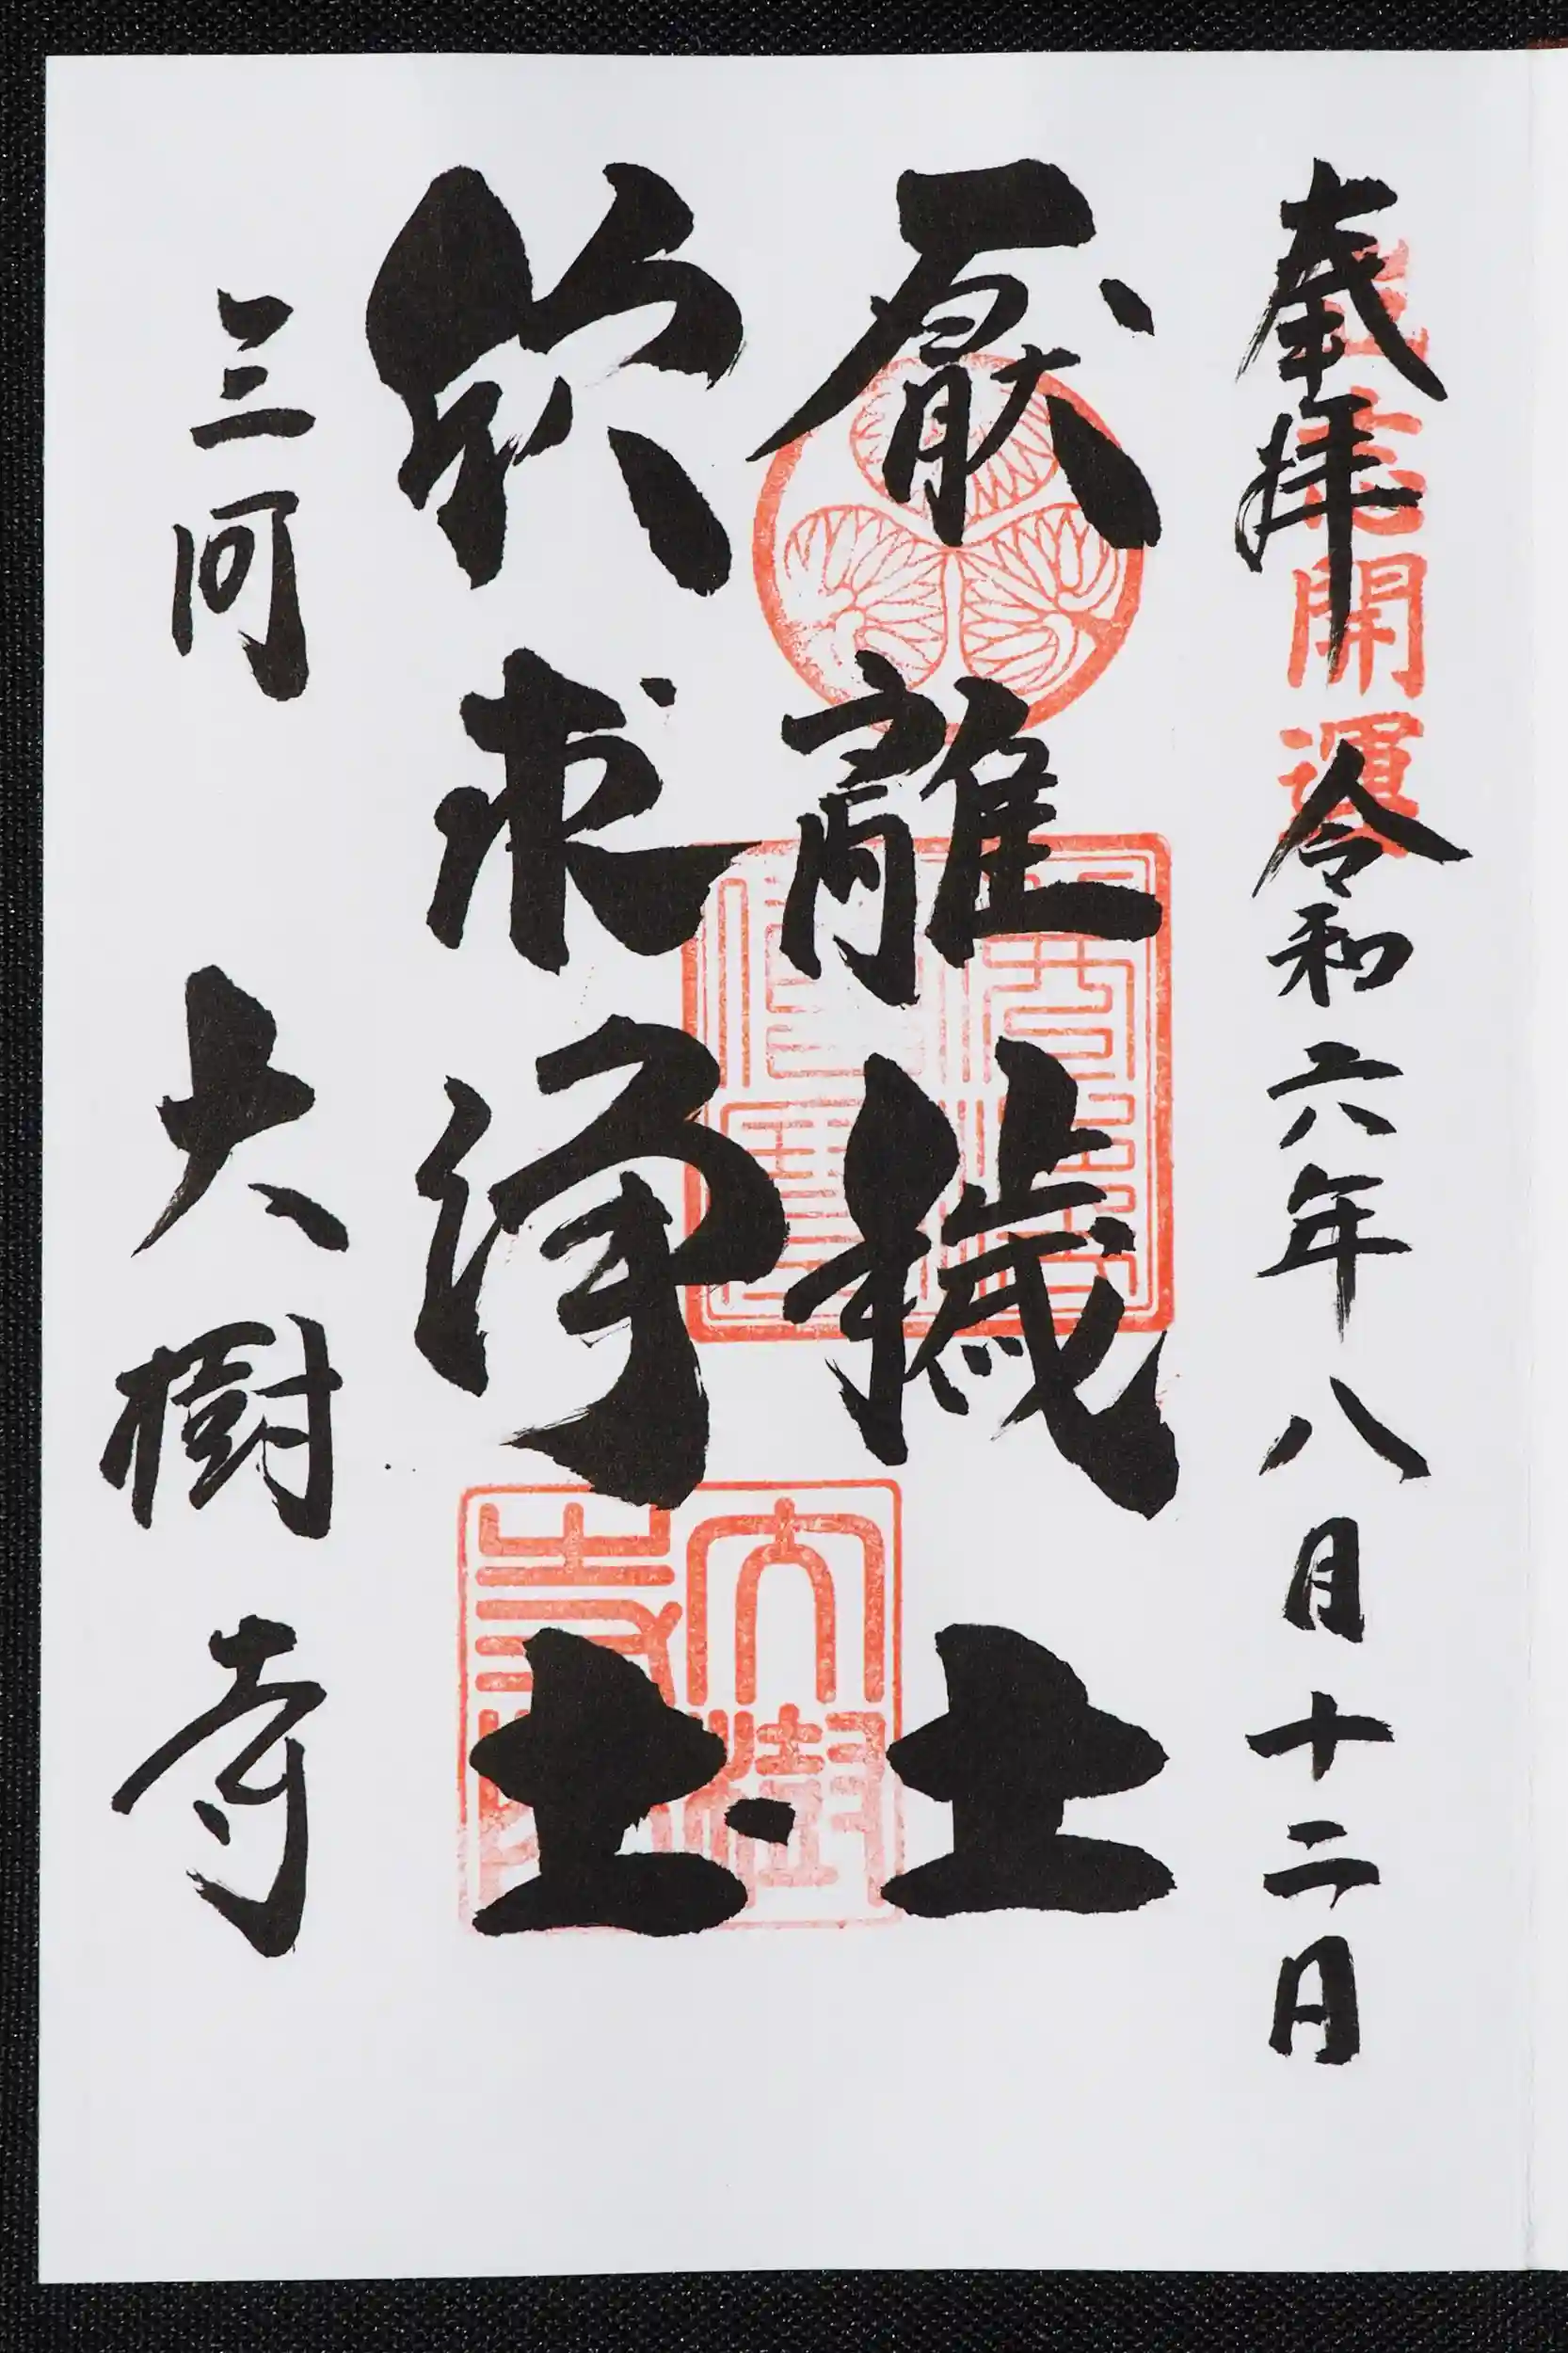 奉拝 令和六年八月十二日
開運
厭離穢土
欣求浄土
三河 大樹寺
大樹寺